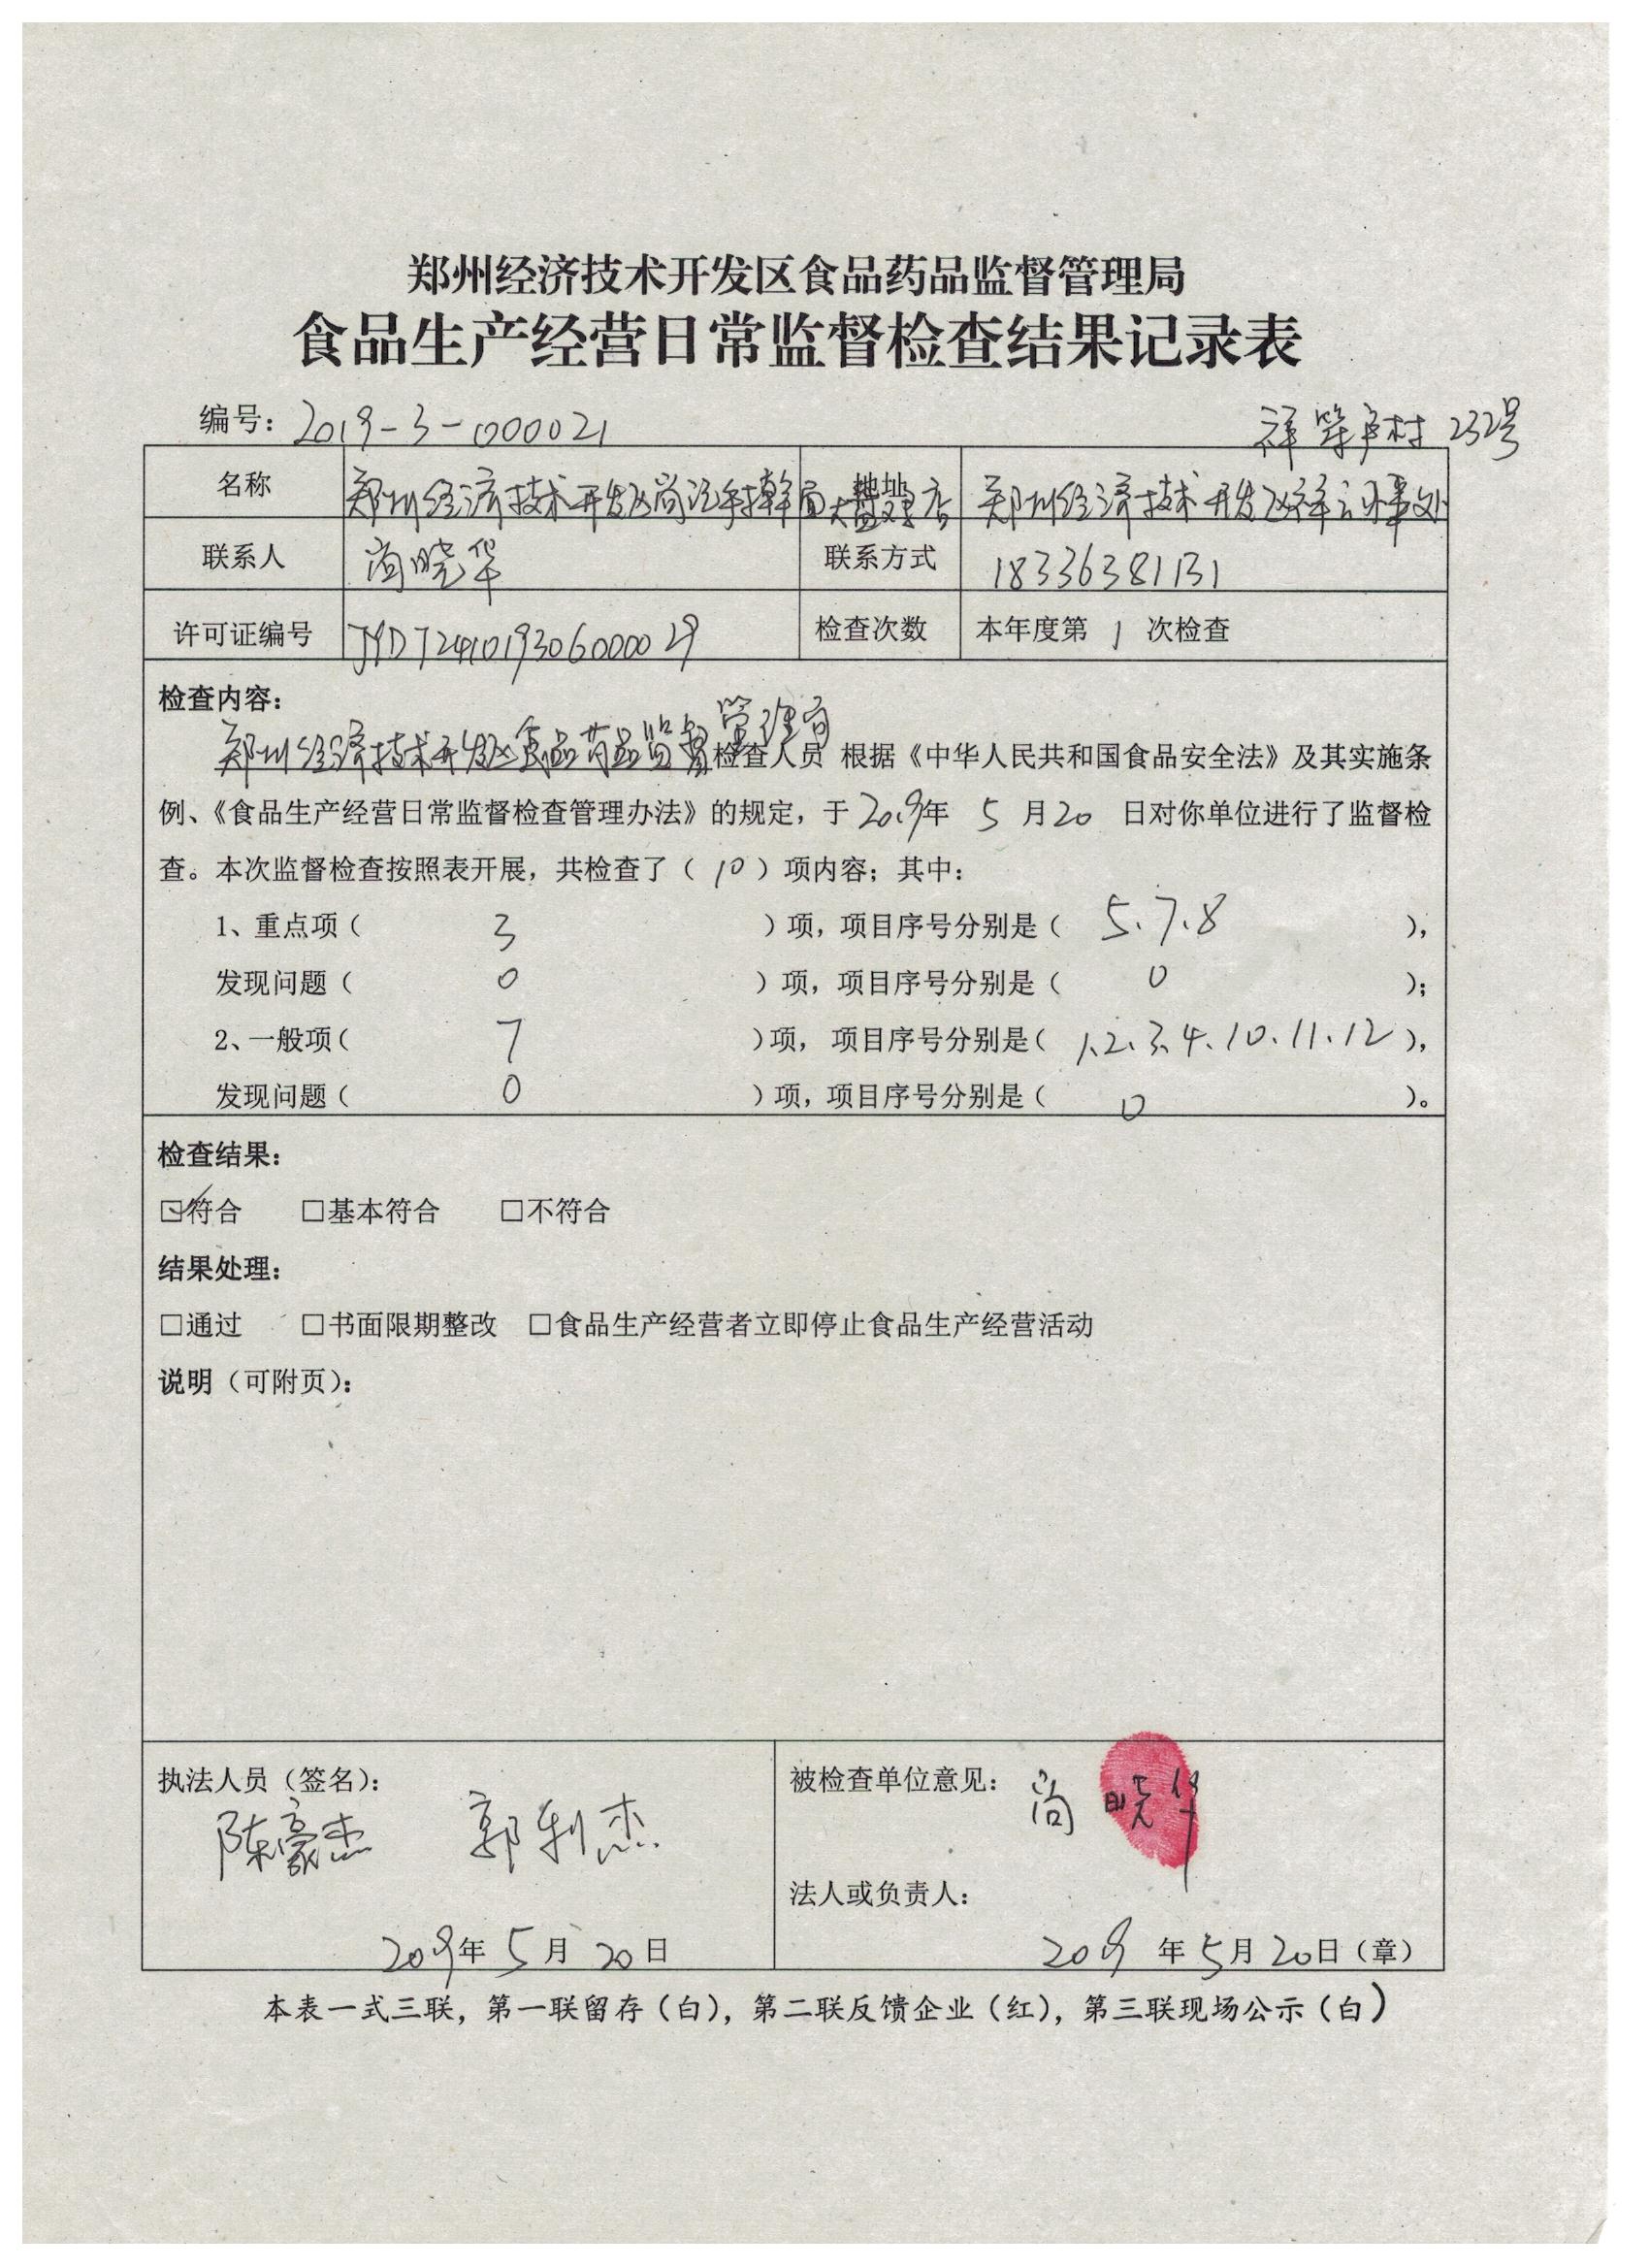 郑州经济技术开发区食品药品监督管理局
食品生产经营日常监督检查结果记录表
编号：2019-3-000021
祥笙卢村 232号
名称 郑州经济技术开发区尚记手擀面大盘鸡店 地址 郑州经济技术开发区祥云办事处
联系人 尚晓华 联系方式 18336381131
许可证编号 JYDT2410193060000029 检查次数 本年度第 1 次检查
检查内容：
郑州经济技术开发区食品药品监督管理局检查人员 根据《中华人民共和国食品安全法》及其实施条
例、《食品生产经营日常监督检查管理办法》的规定，于 2019年 5 月20 日对你单位进行了监督检
查。本次监督检查按照表开展，共检查了（10）项内容；其中：
1、重点项（ 3 ）项，项目序号分别是（ 5、7、8 ），
发现问题（ 0 ）项，项目序号分别是（ 0 ）；
2、一般项（ 7 ）项， 项目序号分别是（ 1、2、3、4、10、11、12 ），
发现问题（ 0 ）项，项目序号分别是（ 0 ）。
检查结果：
☑符合 □基本符合 □不符合
结果处理：
□通过 □书面限期整改 □食品生产经营者立即停止食品生产经营活动
说明（可附页）：
执法人员（签名）：
陈豪杰 郭利杰
2019年 5 月 20日
被检查单位意见： 尚晓华
法人或负责人：
2019 年 5月 20日（章）
本表一式三联，第一联留存（白），第二联反馈企业（红），第三联现场公示（白）